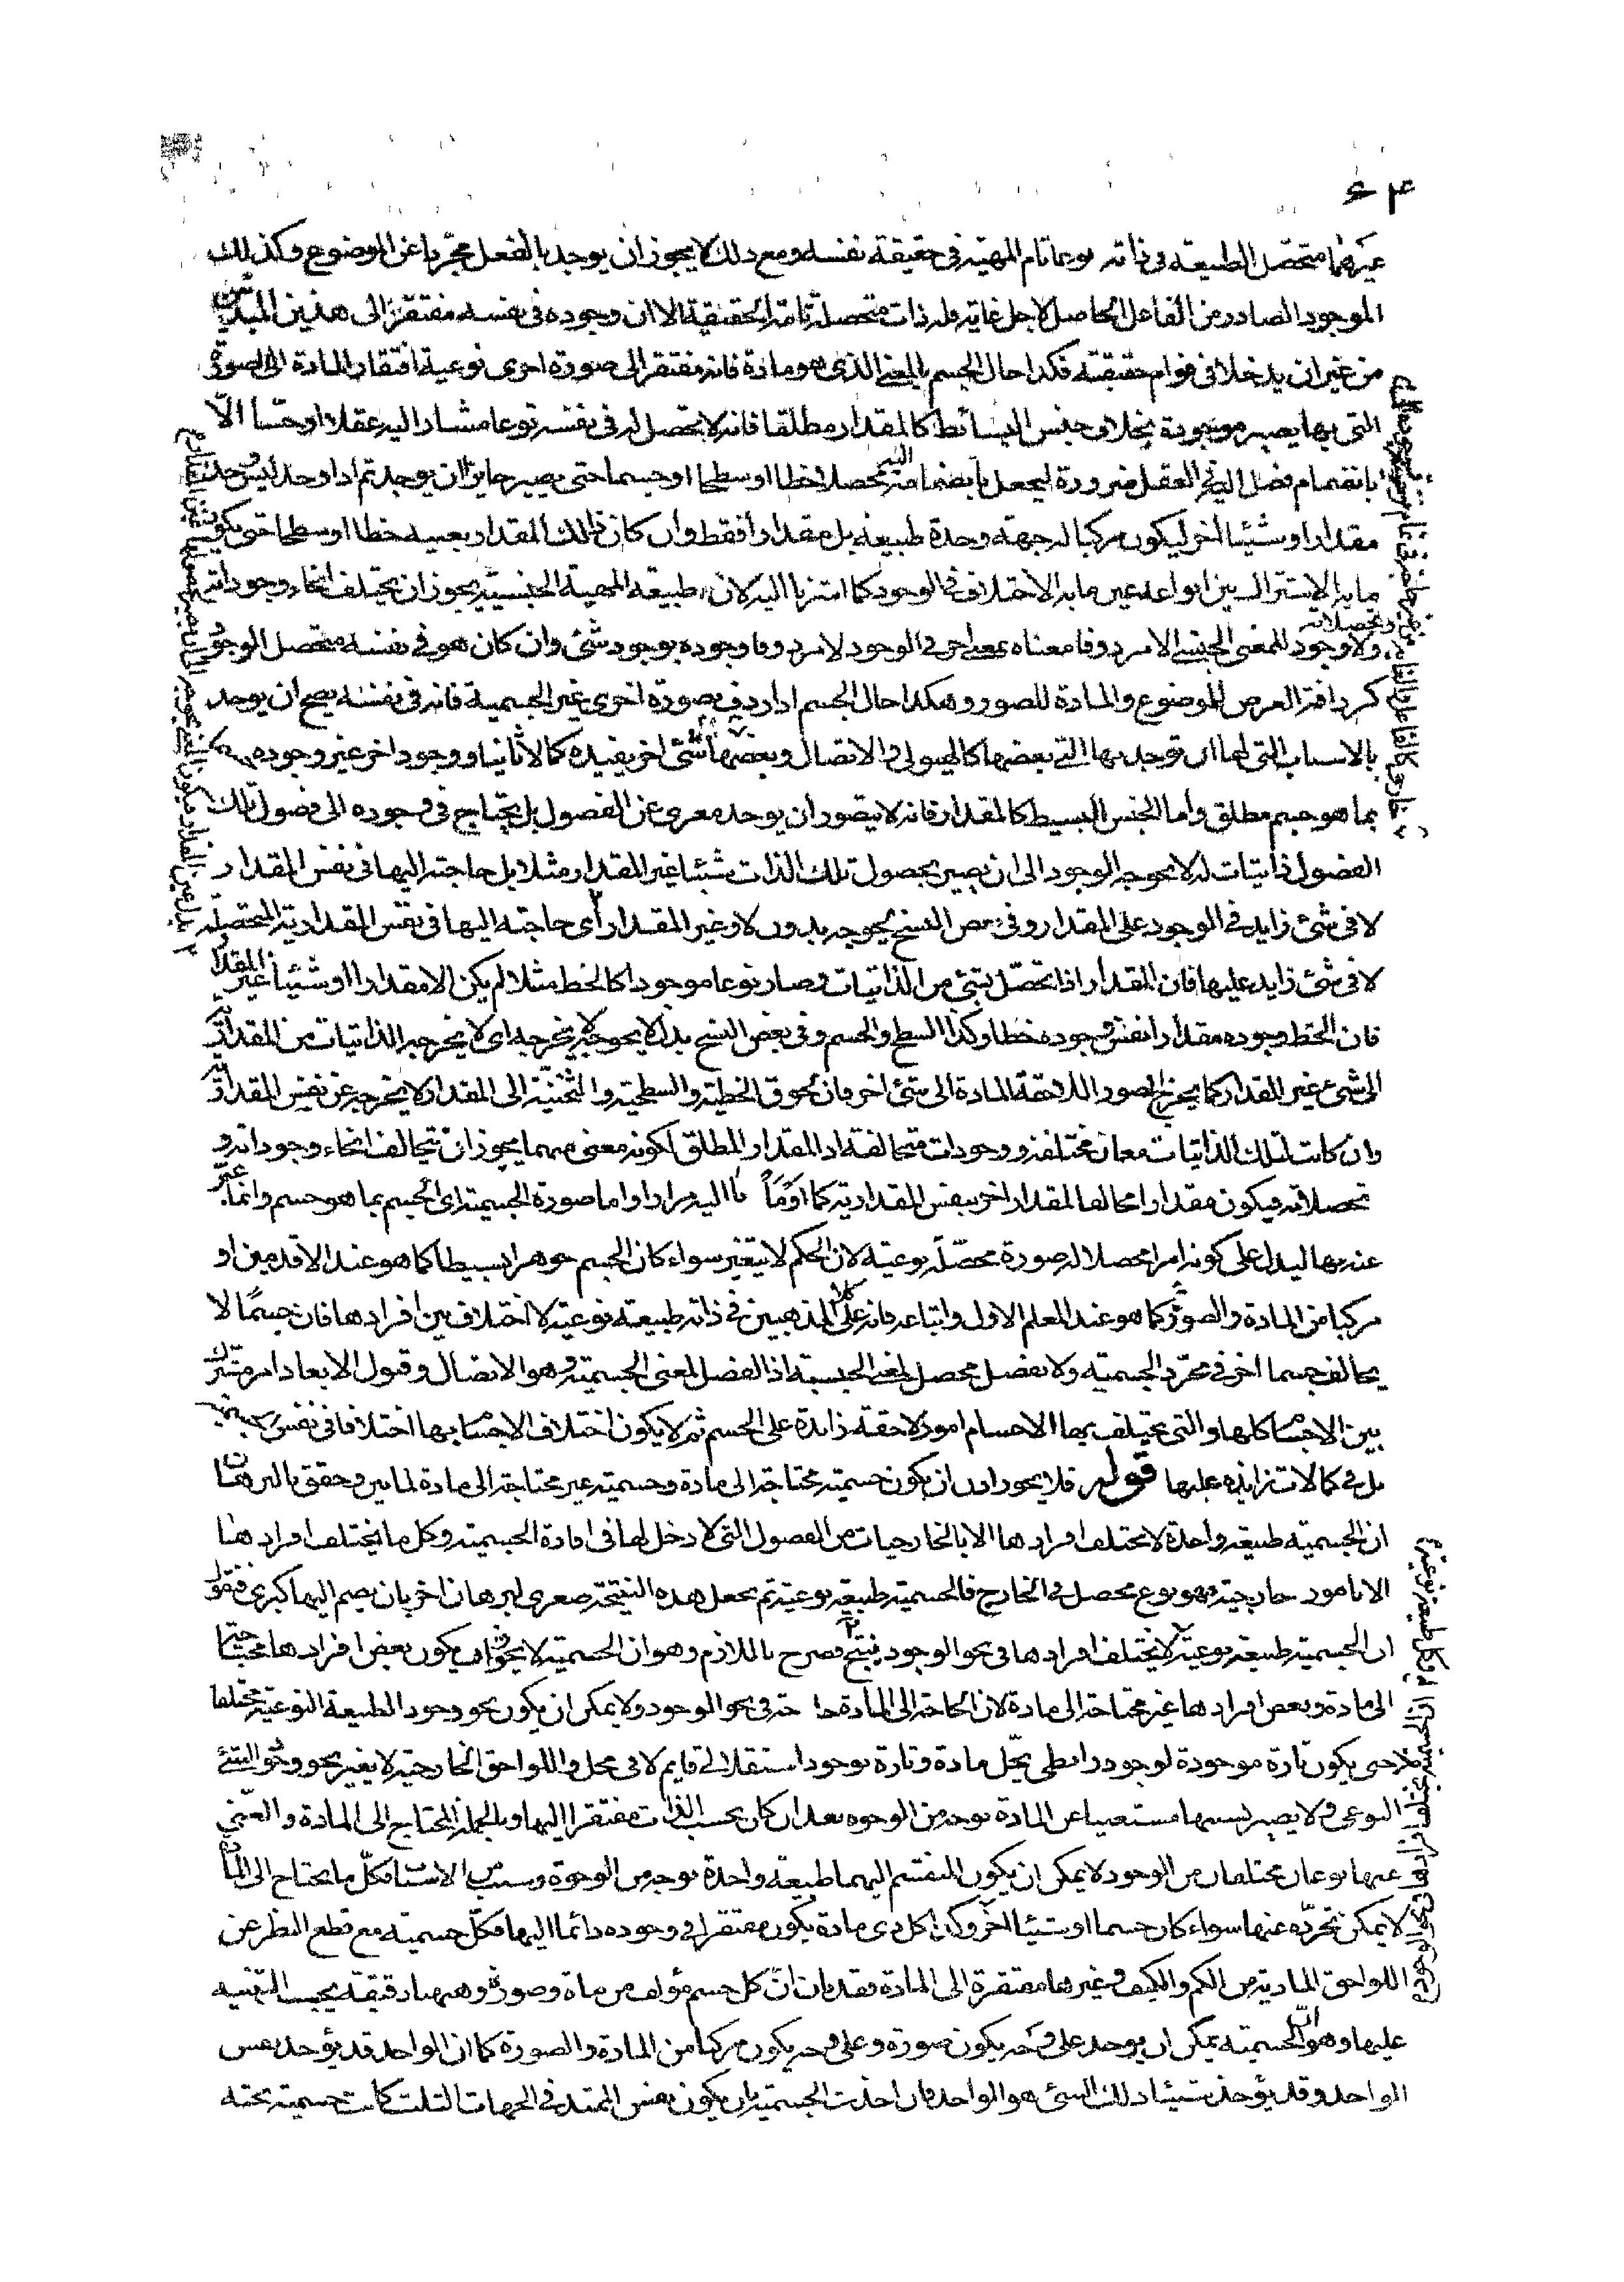 ٦٤
غيرهما متحصل الطبيعه فى ذاته نوعا تام المهيّة فى حقيقة نفسه ومع ذلك لا يجوز ان يوجد بالفعل مجرّدا عن الموضوع وكذلك
الموجود الصادر من الفاعل الحاصل لاجل غاية فله ذات متحصلة تامة الحقيقة الا ان وجوده فى نفسه مفتقر الى هذين المبدئين
من غير ان يدخلا فى قوام حقيقته فكذا حال الجسم بالمعنى الذى هو مادة فانه مفتقر الى صورة اخرى نوعية افتقار المادة الى الصورة
التى بها يصير موجودة بخلاف جنس البسائط كالمقدار مطلقا فانه لا يتحصل له فى نفسه نوعا مشارا اليه عقلا او حسّا الّا
بانضمام فصل اليه فى العقل ضرورة ليجعل بانضمامه اليه محصلا خطا او سطحا او جسما حتى يصير جايزا ان يوجد ثم اذا وجد ليس وجد
مقدارا وشيئا اخر ليكون مركبا له جهة وحدة طبيعة بل مقدارا فقط وان كان ذلك المقدار بعينه خطا او سطحا حتى يكون
ما به الاشتراك بين انواعه عين ما به الاختلاف فى الوجود كما اشرنا اليه لان طبيعة المهية الجنسيّة يجوز ان يختلف انحاء وجوداته
وتحصلاته
ولا وجود للمعنى الجنسى الا مردوفا معناه بمعنى اخر فى الوجود لا مردوفا وجوده بوجود شئ وان كان هو فى نفسه متحصل الوجود
كمرادفة العرض للموضوع والمادة للصور وهكذا حال الجسم اذا ردف بصورة اخرى غير الجسمية فانه فى نفسه يصح ان يوجد
بالاسباب التى لها ان توجد بها التى بعضها كالهيولى والاتصال وبعضها شئ اخر يفيده كمالا ثانيا ووجود اخر غير وجوده
بما هو جسم مطلق واما الجنس البسيط كالمقدار فانه لا يتصور ان يوجد معرى عن الفصول بل يحتاج فى وجوده الى فصول تلك
الفصول ذاتيات له لا يحوجه الوجود الى ان يصير بحصول تلك الذات شيئا غير المقدار مثلا بل حاجته اليها فى نفس المقدار
لا فى شئ زايد فى الوجود على المقدار وفى بعض النسخ يحوجه بدون لا وغير المقدار اى حاجته اليها فى نفس المقدارية المتحصلة
لا فى شئ زايد عليها فان المقدار اذا تحصّل بشئ من الذاتيات وصار نوعا موجودا كالخط مثلا لم يكن الا مقدارا او شيئا غير المقدار
فان الخط وجوده مقدارا نفس وجوده خطا وكذا السطح والجسم وفى بعض النسخ بدل لا يحوجه لا يخرجه اى لا يخرجه الذاتيات من المقدارية
الى شئ غير المقدار كما يخرج الصور اللاحقة المادة الى شئ اخر فان لحوق الخطية والسطحية والثخنيّة الى المقدار لا يخرجه عن نفس المقدارية
وان كانت لتلك الذاتيات معان مختلفة ووجودات متخالفة اذ المقدار المطلق لكونه معنى مبهما يجوز ان يتخالف انحاء وجوداته و
تحصلاته فيكون مقدارا مخالفا لمقدار اخر بنفس المقدارية كما اومأنا اليه مرارا واما صورة الجسمية اى الجسم بما هو جسم وانما عبّر
عنه بها ليدل على كونه امرا محصلا له صورة محصّلة نوعية لان الحكم لا يتغير سواء كان الجسم جوهرا بسيطا كما هو عند الاقدمين او
مركبا من المادة والصورة كما هو عند المعلم الاول واتباعه فانه على كلا المذهبين فى ذاته طبيعة نوعية لا اختلاف بين افرادها فان جسمًا لا
يخالف جسما اخر فى مجرّد الجسمية ولا بفصل محصل للمعنى الجسمية اذ الفصل لمعنى الجسمية وهو الاتصال وقبول الابعاد امر مشترك
بين الاجسام كلها والتى يختلف بها الاجسام امور لاحقة زايدة على الجسم ثم لا يكون اختلاف الاجسام بها اختلافا فى نفس جسميته
بل فى كمالات زايدة عليها قوله فلا يجوز اذن ان يكون جسمية محتاجة الى مادة وجسمية غير محتاجة الى مادة لما بين وحقق بالبرهان
ان الجسمية طبيعة واحدة لا يختلف افرادها الا بالخارجيات من الفصول التى لا دخل لها فى افادة الجسمية وكل ما يختلف افرادها
الا بامور خارجية فهو نوع محصل فى الخارج فالجسمية طبيعة نوعية ثم جعل هذه النتيجة صغرى لبرهان اخر بان يضم اليها كبرى فنقول
ان الجسمية طبيعة نوعية لا يختلف افرادها فى نحو الوجود ينتج فصرح باللازم وهو ان الجسمية لا يجوز ان يكون بعض افرادها محتاجا
الى مادة وبعض افرادها غير محتاجة الى مادة لان الحاجة الى المادة حاجة فى نحو الوجود ولا يمكن ان يكون نحو وجود الطبيعة النوعية مختلفا
حتى يكون تارة موجودة لوجود رابطى يحل مادة وتارة بوجود استقلالى قايم لا فى محل واللواحق الخارجية لا يغير نحو وجود الشئ
النوعى ولا يصير بسببها مستغنيا عن المادة بوجه من الوجوه بعد ان كان بحسب الذات مفتقرا اليها وبالجملة المحتاج الى المادة والغنى
عنها نوعان مختلفان من الوجود لا يمكن ان يكون المنقسم اليهما طبيعة واحدة بوجه من الوجوه وسبب من الاسباب فكلّ ما يحتاج الى المادة
لا يمكن تجرّده عنها سواء كان جسما او شيئا اخر وكذا كل ذى مادة يكون مفتقرا فى وجوده دائما اليها فكلّ جسمية مع قطع النظر عن
اللواحق المادية من الكم والكيف وغيرها مفتقرة الى المادة فقد بان انّ كل جسم مؤلف من مادة وصورة وههنا دقيقة يجب التنبيه
عليها وهو ان الجسمية يمكن ان يوجد على وجه يكون صورة وعلى وجه يكون مركبا من المادة والصورة كما ان الواحد قد يؤخذ نفس
الواحد وقد يؤخذ شيئا ذلك الشئ هو الواحد فان اخذت الجسمية بان يكون نفس الممتد فى الجهات الثلث كانت جسمية بحتة